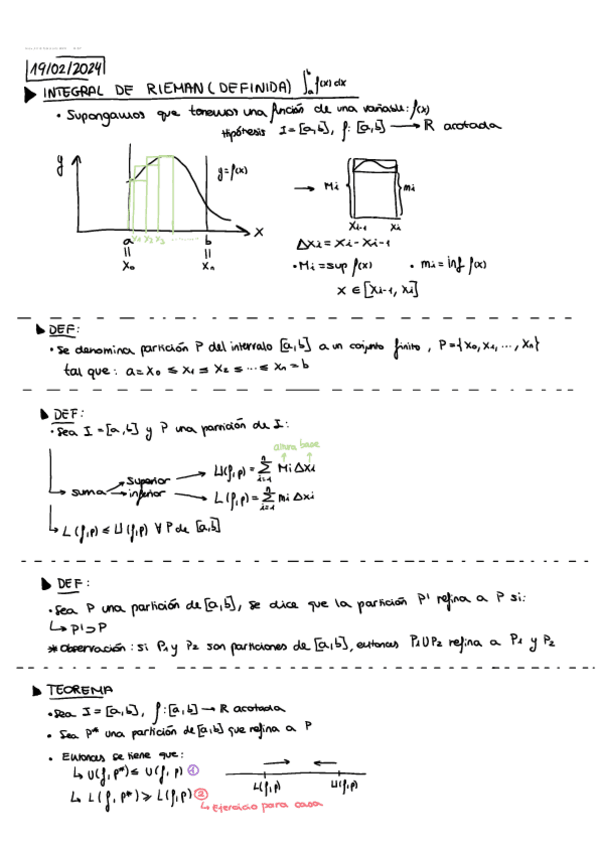 19/02/2024
INTEGRAL DE RIEMAN (DEFINIDA) ∫_a^b f(x) dx
• Supongamos que tenemos una función de una variable: f(x)
Hipótesis I=[a,b], f:[a,b] → R acotada
y
y=f(x)
x
a x1 x2 x3 ........ b
x0
xn
→ Mi
mi
xi-1 xi
Δxi = xi - xi-1
• Mi = sup f(x) • mi = inf f(x)
x ∈ [xi-1, xi]
DEF:
• Se denomina partición P del intervalo [a,b] a un conjunto finito, P={x0, x1, ..., xn}
tal que: a=x0 ≤ x1 ≤ x2 ≤ ... ≤ xn=b
DEF:
• Sea I=[a,b] y P una partición de I:
altura base
suma
superior → U(f,p) = Σ_{i=1}^n Mi Δxi
inferior → L(f,p) = Σ_{i=1}^n mi Δxi
L(f,p) ≤ U(f,p) ∀ P de [a,b]
DEF:
• Sea P una partición de [a,b], se dice que la partición P' refina a P si:
↳ P'⊃P
* Observación: si P1 y P2 son particiones de [a,b], entonces P1∪P2 refina a P1 y P2
TEOREMA
• Sea I=[a,b], f:[a,b] → R acotada
• Sea P* una partición de [a,b] que refina a P
• Entonces se tiene que:
↳ U(f,p*) ≤ U(f,p) ①
↳ L(f,p*) ≥ L(f,p) ②
↳ Ejercicio para casa
L(f,p) U(f,p)